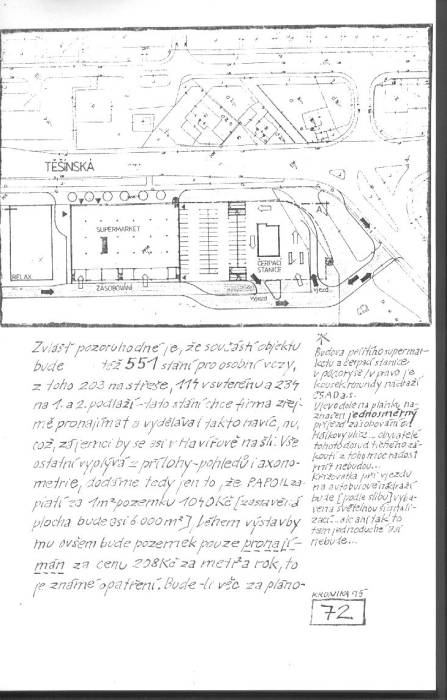 TĚŠÍNSKÁ
SUPERMARKET
ČERPACÍ
STANICE
RELAX
ZÁSOBOVÁNÍ
výjezd
vjezd
Zvlášť pozoruhodné je, že součástí objektu
bude též 551 stání pro osobní vozy,
z toho 203 na střeše, 114 v suterénu a 234
na 1. a 2. podlaží – tato stání chce firma zřej-
mě pronajímat a vydělávat takto navíc, nu,
což, zájemci by se asi v Havířově našli. Vše
ostatní vyplývá z přílohy – pohledů i axono-
metrie, dodejme tedy jen to, že PAPOIL za-
platí za 1m² pozemku 1040 Kč [zastavěná
plocha bude asi 6000 m²], během výstavby
mu ovšem bude pozemek pouze pronají-
mán za cenu 208 Kč za metr a rok, to
je známé opatření. Bude-li věc za pláno-
Budova příštího supermar-
ketu a čerpací stanice
v půdoryse, vpravo je
kousek roundy nádraží
ČSAD a.s.
jednosměrný
příjezd zásobování od
Haškovy ulic... obyvatelé
tohoto dosud tichého zá-
koutí z toho moc radost
mít nebudou...
Křižovatka při vjezdu
na autobusové nádraží
bude [podle slibu] vyba-
vena světelnou signali-
zací... ale ani tak to
tam jednoduché asi
nebude...
KRONIKA 95
72